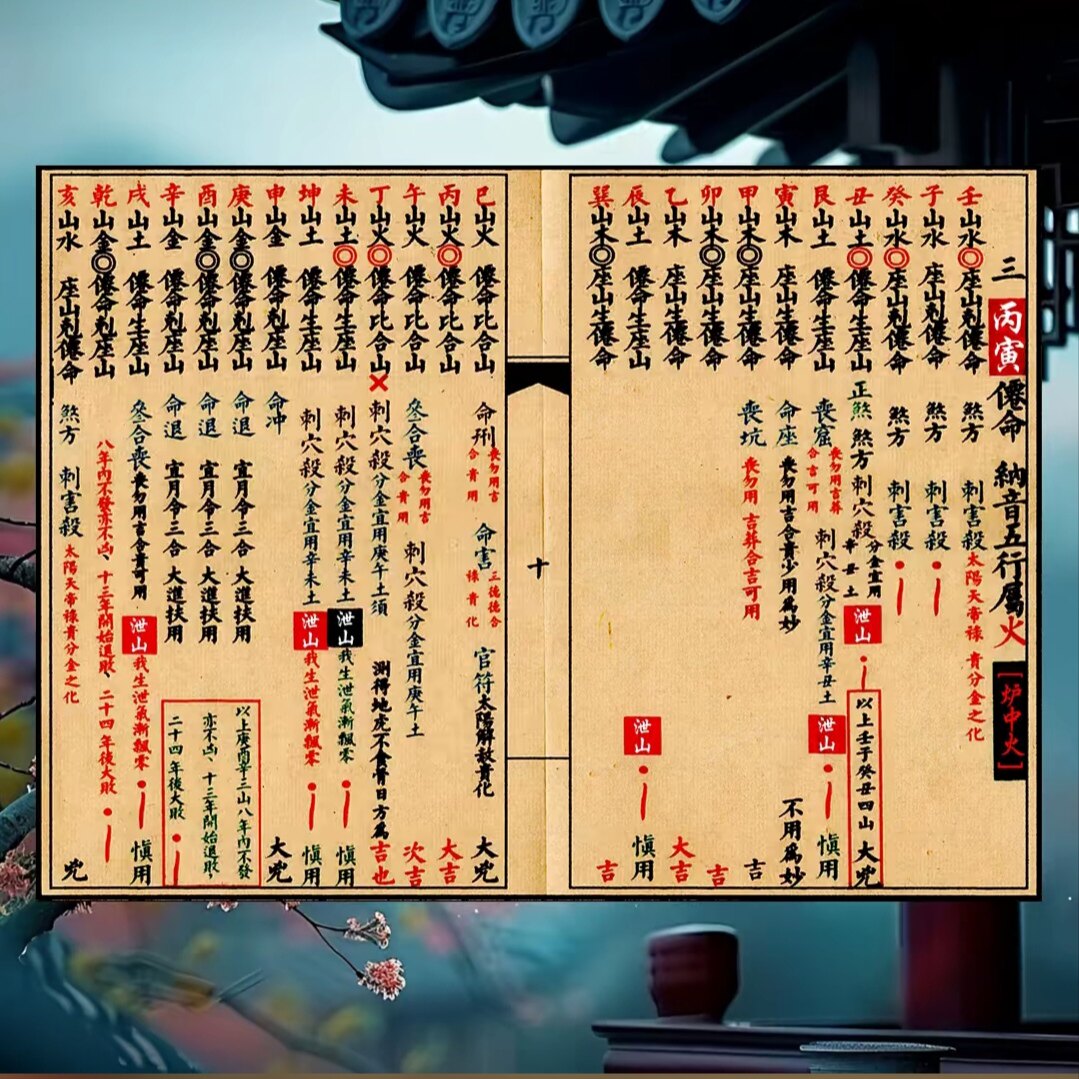 三 丙寅 僊命 納音五行屬火 [炉中火]
壬山水 座山剋僊命 煞方 刺害殺 太陽天帝祿 貴分金之化
子山水 座山剋僊命 煞方 刺害殺
癸山水 座山剋僊命 煞方 刺害殺
丑山土 僊命生座山 正煞 煞方 刺穴殺 分金宜用辛丑土 泄山
以上壬子癸丑四山 大兇
艮山土 僊命生座山 喪窟 喪勿用言葬合言可用 刺穴殺 分金宜用辛丑土 泄山 慎用
寅山木 座山生僊命 命座 喪勿用吉合貴少用為妙 不用為妙
甲山木 座山生僊命 喪坑 喪勿用 吉葬合吉可用 吉
卯山木 座山生僊命 吉
乙山木 座山生僊命 大吉
辰山土 僊命生座山 泄山 慎用
巽山木 座山生僊命 吉
十
巳山火 僊命比合山 命刑 喪勿用言合貴用 命害 三德德合祿貴化 官符 太陽解救貴化 大兇
丙山火 僊命比合山 大吉
午山火 僊命比合山 叅合喪 喪勿用吉合貴用 刺穴殺 分金宜用庚午土 次吉
丁山火 僊命比合山 刺穴殺 分金宜用庚午土須 測得地虎不食骨日方為吉也
未山土 僊命生座山 刺穴殺 分金宜用辛未土 泄山 我生泄氣漸飄零 慎用
坤山土 僊命生座山 刺穴殺 分金宜用辛未土 泄山 我生泄氣漸飄零 慎用
申山金 僊命剋座山 命冲 大兇
庚山金 僊命剋座山 命退 宜月令三合 大進扶用
酉山金 僊命剋座山 命退 宜月令三合 大進扶用
辛山金 僊命剋座山 命退 宜月令三合 大進扶用
以上庚酉辛三山八年內不發
亦不凶、十三年開始退敗
二十四年後大敗
戌山土 僊命生座山 叅合喪 喪勿用吉合貴可用 泄山 我生泄氣漸飄零 慎用
乾山金 僊命剋座山 八年內不發亦不凶、十三年開始退敗、二十四年後大敗
亥山水 座山剋僊命 煞方 刺害殺 太陽天帝祿貴分金之化 兇